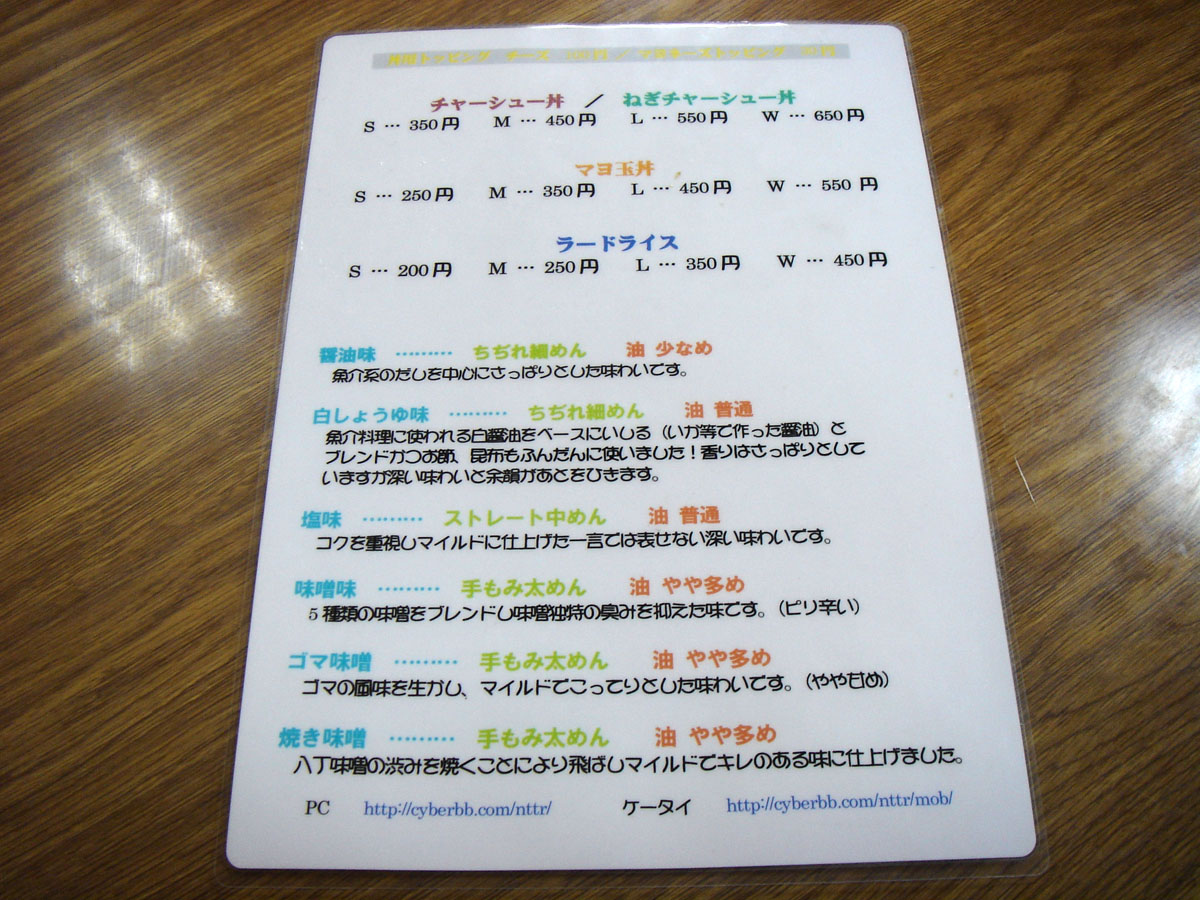 トッピング チーズ 円 / マヨネーズトッピング 円
チャーシュー丼 / ねぎチャーシュー丼
S … 350円 M … 450円 L … 550円 W … 650円
マヨ玉丼
S … 250円 M … 350円 L … 450円 W … 550円
ラードライス
S … 200円 M … 250円 L … 350円 W … 450円
醤油味 ……… ちぢれ細めん 油 少なめ
魚介系のだしを中心にさっぱりとした味わいです。
白しょうゆ味 ……… ちぢれ細めん 油 普通
魚介料理に使われる白醤油をベースにいしる（いか等で作った醤油）と
ブレンドかつお節、昆布もふんだんに使いました！香りはさっぱりとして
いますが深い味わいと余韻があとをひきます。
塩味 ……… ストレート中めん 油 普通
コクを重視しマイルドに仕上げた一言では表せない深い味わいです。
味噌味 ……… 手もみ太めん 油 やや多め
5種類の味噌をブレンドし味噌独特の臭みを抑えた味です。（ピリ辛い）
ゴマ味噌 ……… 手もみ太めん 油 やや多め
ゴマの風味を生かし、マイルドでこってりとした味わいです。（やや甘め）
焼き味噌 ……… 手もみ太めん 油 やや多め
八丁味噌の渋みを焼くことにより飛ばしマイルドでキレのある味に仕上げました。
PC http://cyberbb.com/nttr/ ケータイ http://cyberbb.com/nttr/mob/